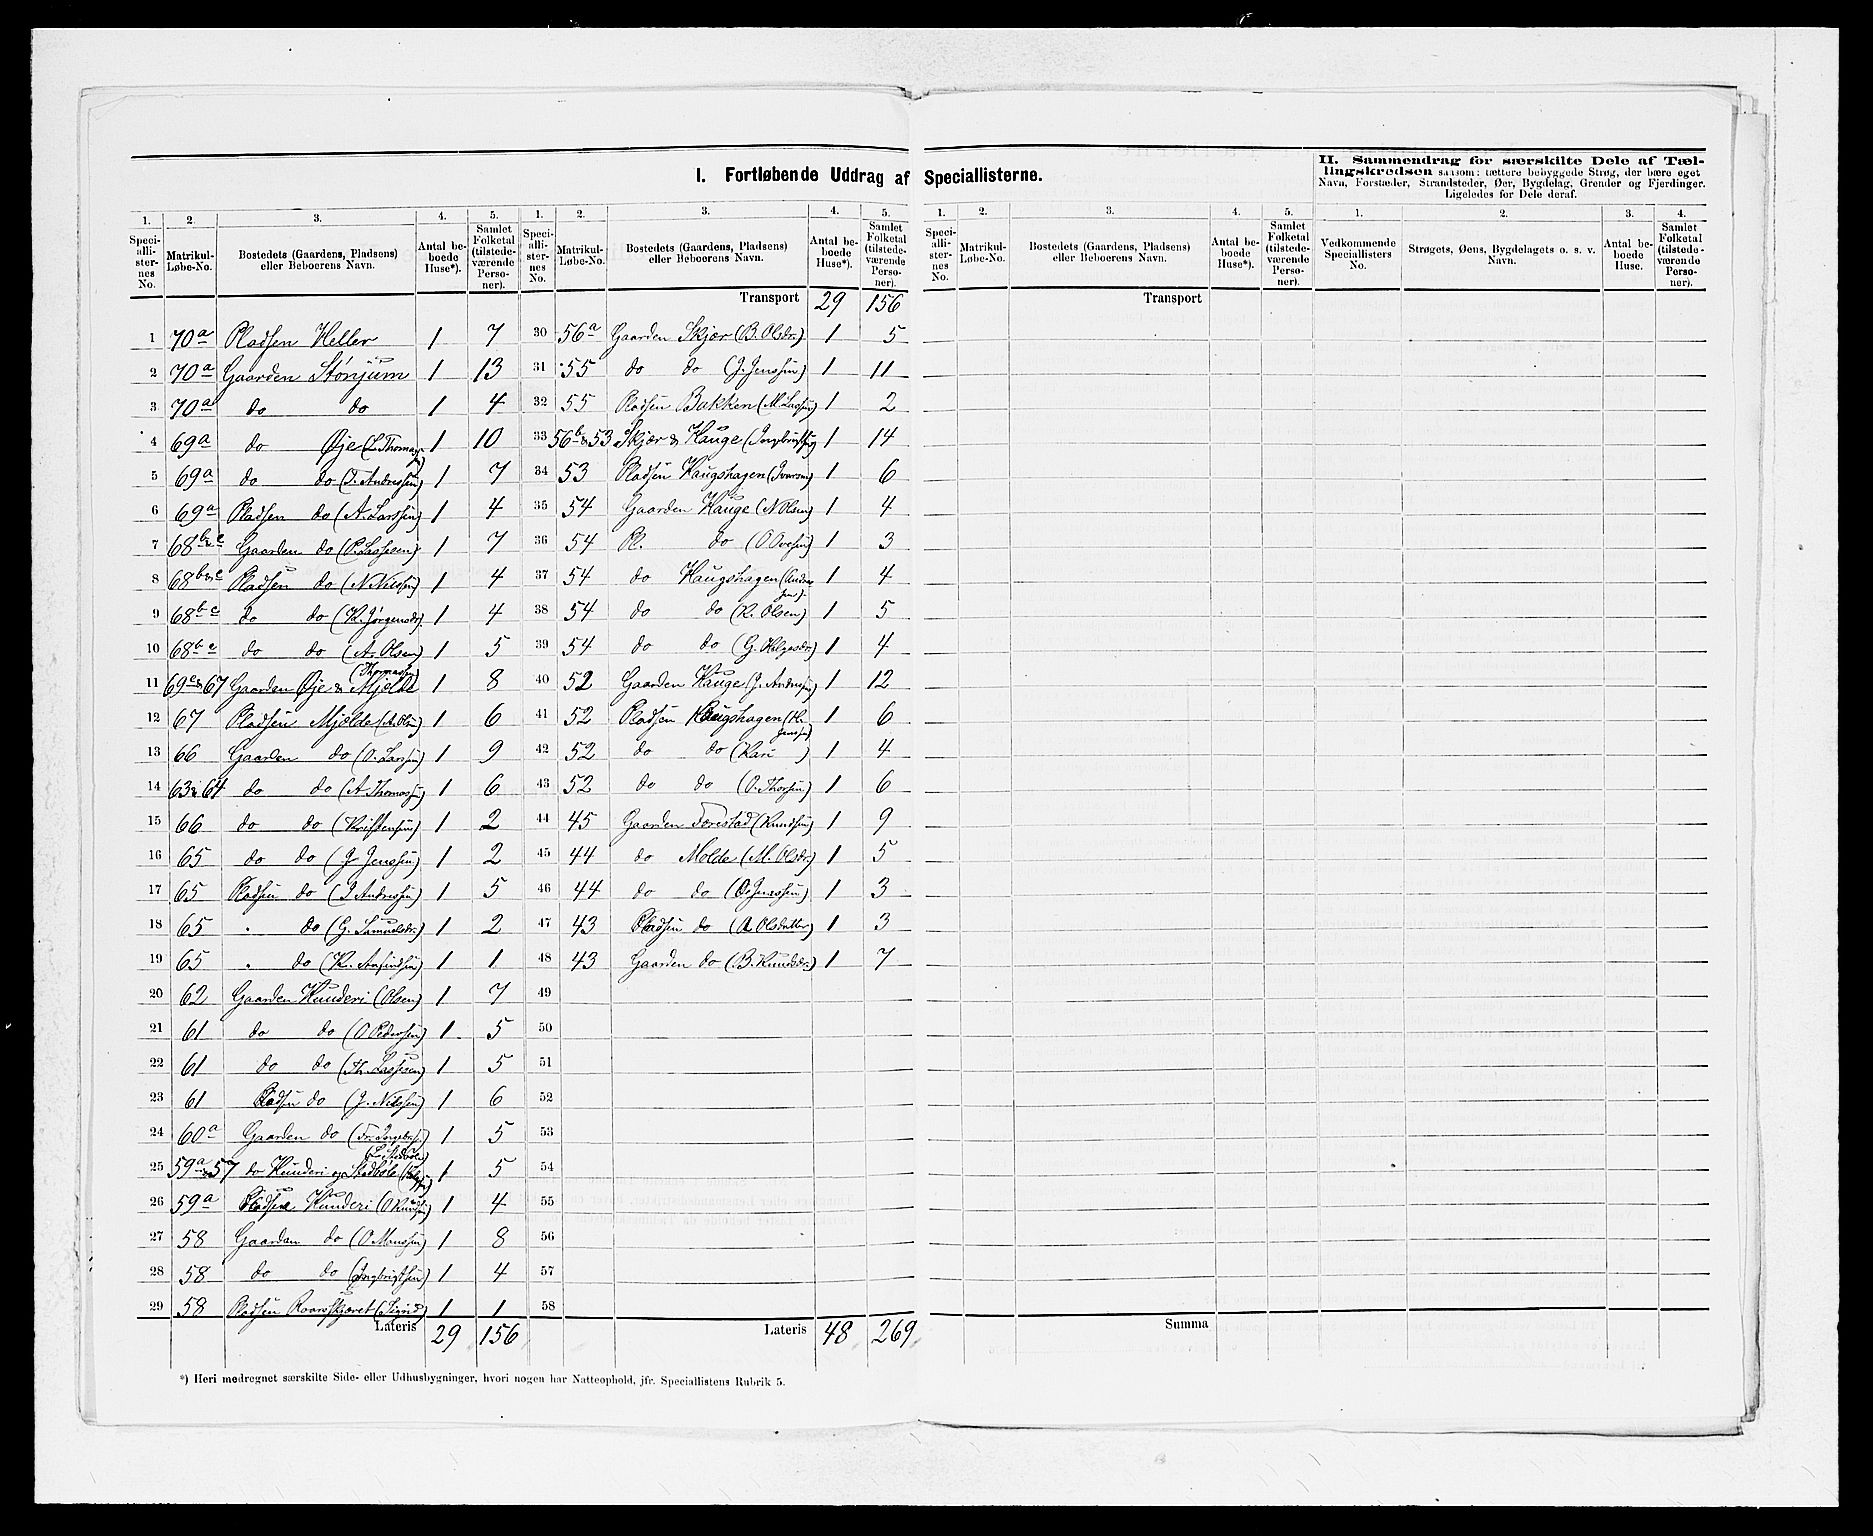 I. Fortløbende Uddrag af Speciallisterne.
II. Sammendrag for særskilte Dele af Tæl-
lingskredsen saasom: tættere bebyggede Strøg, der bære eget
Navn, Forstæder, Strandsteder, Øer, Bygdelag, Grender og Fjerdinger.
Ligeledes for Dele deraf.
1. 2. 3. 4. 5. 1. 2. 3. 4. 5. 1. 2. 3. 4. 5. 1. 2. 3. 4.
Speci-alli-ster-nes No. Matrikul-Løbe-No. Bostedets (Gaardens, Pladsens) eller Beboerens Navn. Antal be-boede Huse*). Samlet Folketal (tilstede-værende Perso-ner).
Speci-alli-ster-nes No. Matrikul-Løbe-No. Bostedets (Gaardens, Pladsens) eller Beboerens Navn. Antal be-boede Huse*). Samlet Folketal (tilstede-værende Perso-ner).
Speci-alli-ster-nes No. Matrikul-Løbe-No. Bostedets (Gaardens, Pladsens) eller Beboerens Navn. Antal be-boede Huse*). Samlet Folketal (tilstede-værende Perso-ner).
Vedkommende Speciallisters No. Strøgets, Øens, Bygdelagets o. s. v. Navn. Antal be-boede Huse. Samlet Folketal (tilstede-værende Perso-ner).
1 70a Pladsen Heller 1 7
2 70a Gaarden Stønjum 1 13
3 70a do do 1 4
4 69a do Øje (L. Thomassen) 1 10
5 69a do do (J. Andressen) 1 7
6 69a Pladsen do (A. Larssen) 1 4
7 68b&c Gaarden do (P. Lassesen) 1 7
8 68b&c Pladsen do (N. Nilssen) 1 4
9 68b c do do (K. Jørgensdr.) 1 4
10 68b c do do (A. Olsen) 1 5
11 69c&67 Gaarden Øje & Mjelde (Thomassen) 1 8
12 67 Pladsen Mjelde (A. Olsen) 1 6
13 66 Gaarden do (O. Larssen) 1 9
14 63&64 do do (A Thomassen) 1 6
15 66 do do (Kristensen) 1 2
16 65 do do (J Jenssen) 1 2
17 65 Pladsen do (J Andressen) 1 5
18 65 " do (G. Samuelsdr.) 1 2
19 65 " do (K. Aasmundsen) 1 1
20 62 Gaarden Hunderi (Olsen) 1 7
21 61 do do (O Pedersen) 1 5
22 61 do do (Th. Lassesen) 1 5
23 61 Pladsen do (J. Nilssen) 1 6
24 60a Gaarden do 1 5
25 59a&57 do Hunderi og Stedbøle 1 5
26 59a Pladsen Hunderi (O Knudsen) 1 4
27 58 Gaarden do (O Monssen) 1 8
28 58 do do (Ingbrigtsen) 1 4
29 58 Pladsen Roarsskjæret (Sigrid) 1 1
Lateris 29 156
Transport 29 156
30 56a Gaarden Skjær (B. Olsdr.) 1 5
31 55 do do (J. Jenssen) 1 11
32 55 Pladsen Bakken (M. Lassen) 1 2
33 56b&53 Skjær & Hauge (Ingebrigtsen) 1 14
34 53 Pladsen Haugshagen (Ivarsen) 1 6
35 54 Gaarden Hauge (N Olsen) 1 4
36 54 Pl. do 1 3
37 54 do Haugshagen (Andressen). 1 4
38 54 do do (K. Olsen) 1 5
39 54 do do (G. Helgesdr.) 1 4
40 52 Gaarden Hauge (J. Andressen) 1 12
41 52 Pladsen Haugshagen (H. Jenssen) 1 6
42 52 do do (Kari ) 1 4
43 52 do do (O. Thorsen) 1 6
44 45 Gaarden Tørrestad (Knudsen) 1 9
45 44 do Molde (M. Olsdr.) 1 5
46 44 do do (O. Jenssen) 1 3
47 43 Pladsen do (A Olsdatter) 1 3
48 43 Gaarden do (B. Knudsdr.) 1 7
49
50
51
52
53
54
55
56
57
58
Lateris 48 269
Transport
Summa
*) Heri medregnet særskilte Side- eller Udhusbygninger, hvori nogen har Natteophold, jfr. Speciallistens Rubrik 5.